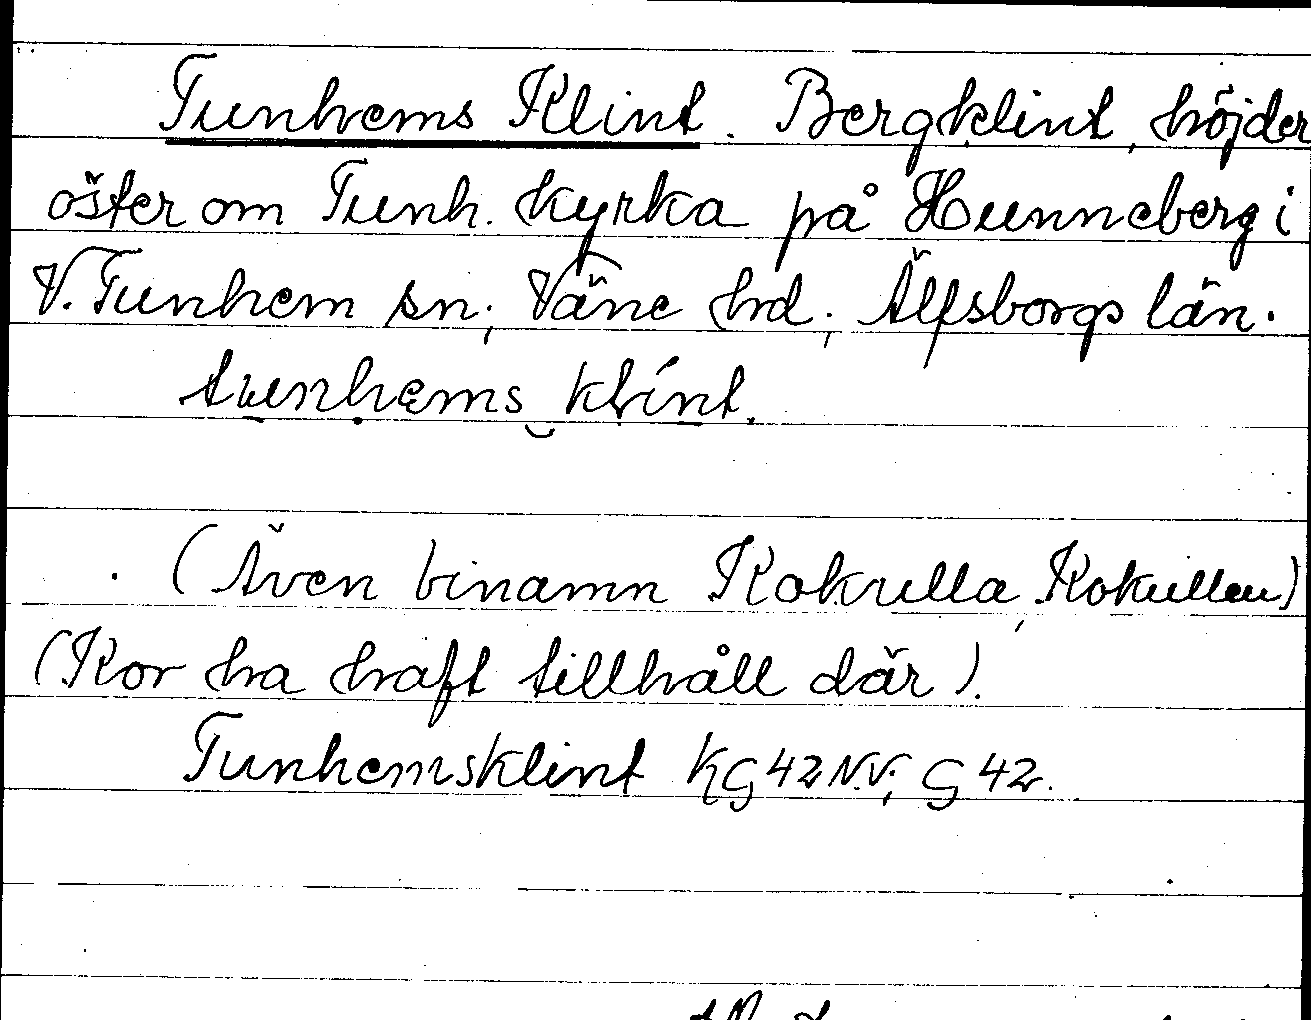 Tunhems Klint. Bergklint, höjder
öster om Tunh. kyrka på Hunneberg i
V. Tunhem sn; Väne hd; Älfsborgs län.
tunhems klint.
(Även binamn Kokulla, Kokullen)
(Kor ha haft tillhåll där).
Tunhemsklint KG 42 N.V; G 42.